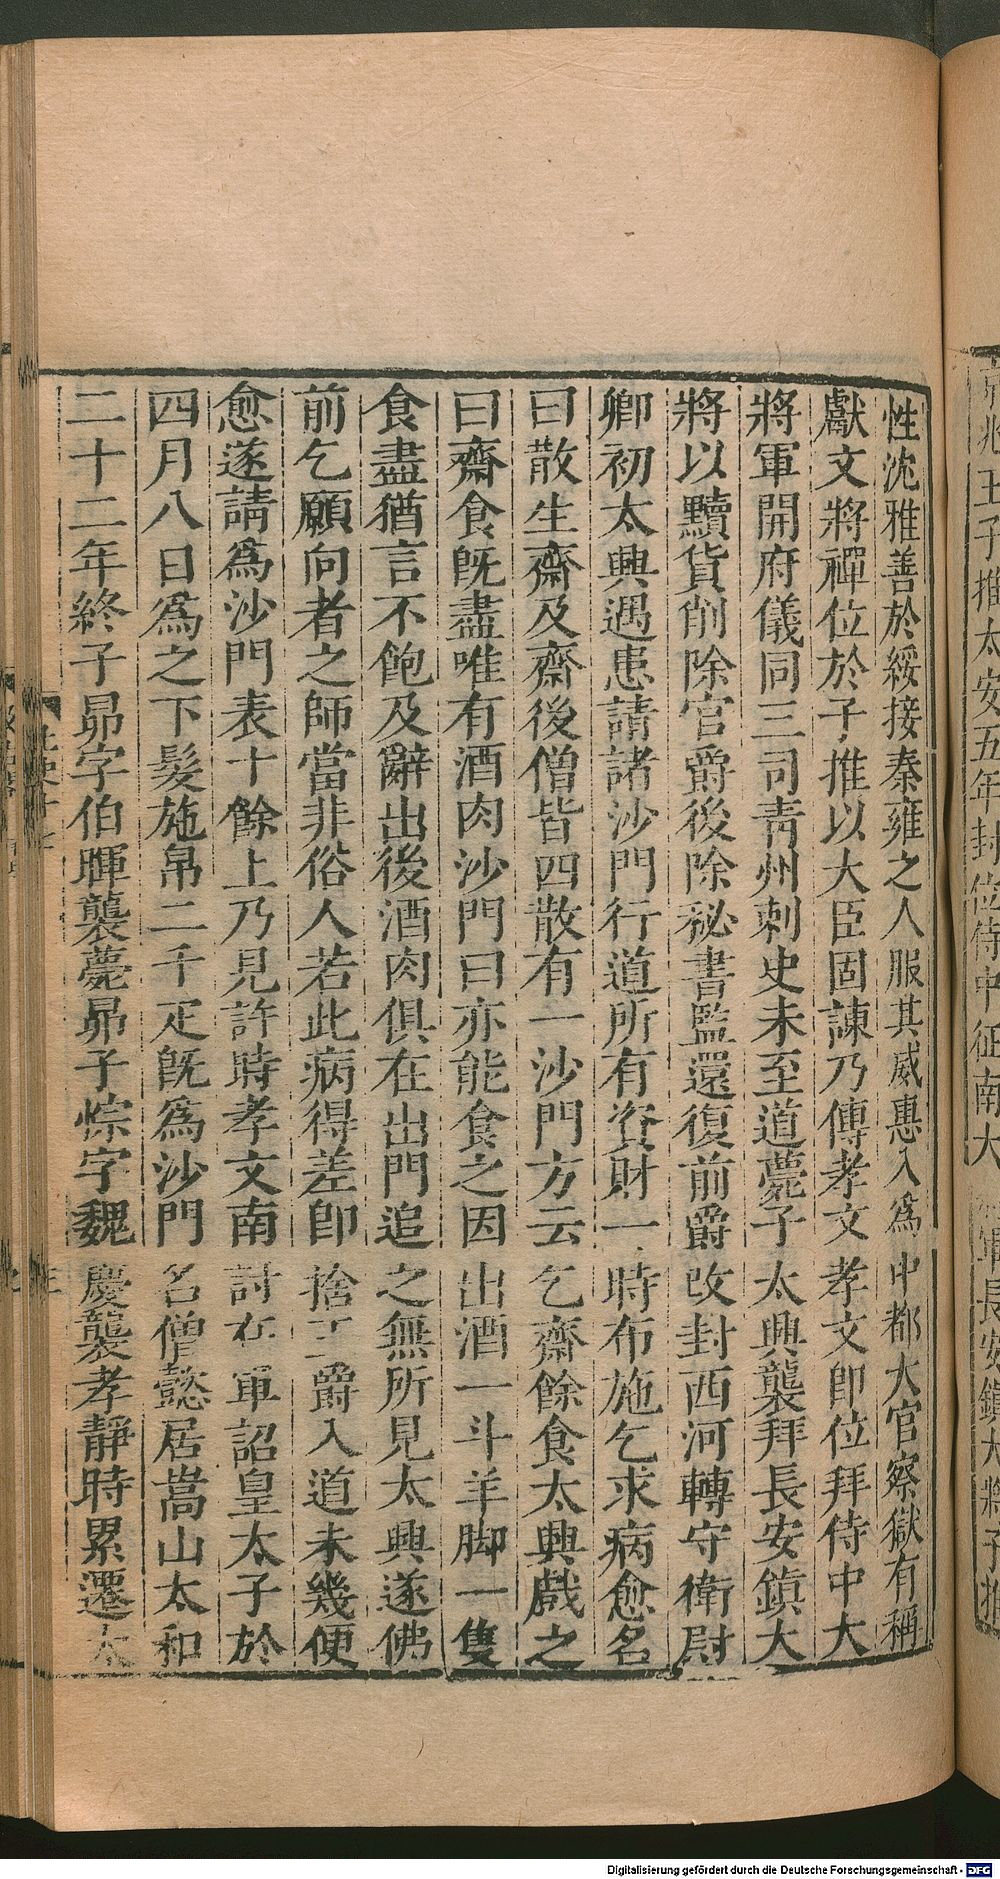 性沈雅善於綏接秦雍之人服其威惠入爲中都大官察獄有稱
獻文將禪位於子推以大臣固諫乃傳孝文孝文即位拜侍中大
將軍開府儀同三司青州刺史未至道薨子太興襲拜長安鎮大
將以黷貨削除官爵後除秘書監還復前爵改封西河轉守衛尉
卿初太興遇患請諸沙門行道所有資財一時布施乞求病愈名
曰散生齋及齋後僧皆四散有一沙門方云乞齋餘食太興戲之
曰齋食旣盡唯有酒肉沙門曰亦能食之因出酒一斗羊脚一隻
食盡猶言不飽及辭出後酒肉俱在出門追之無所見太興遂佛
前乞願向者之師當非俗人若此病得差卽捨王爵入道未幾便
愈遂請爲沙門表十餘上乃見許時孝文南討在軍詔皇太子於
四月八日爲之下髮施帛二千疋旣爲沙門名僧懿居嵩山太和
二十二年終子昴字伯暉襲薨昴子悰字魏慶襲孝靜時累遷太
京兆王子推太安五年封位侍中征南大將軍長安鎮大將子推
Digitalisierung gefördert durch die Deutsche Forschungsgemeinschaft - DFG